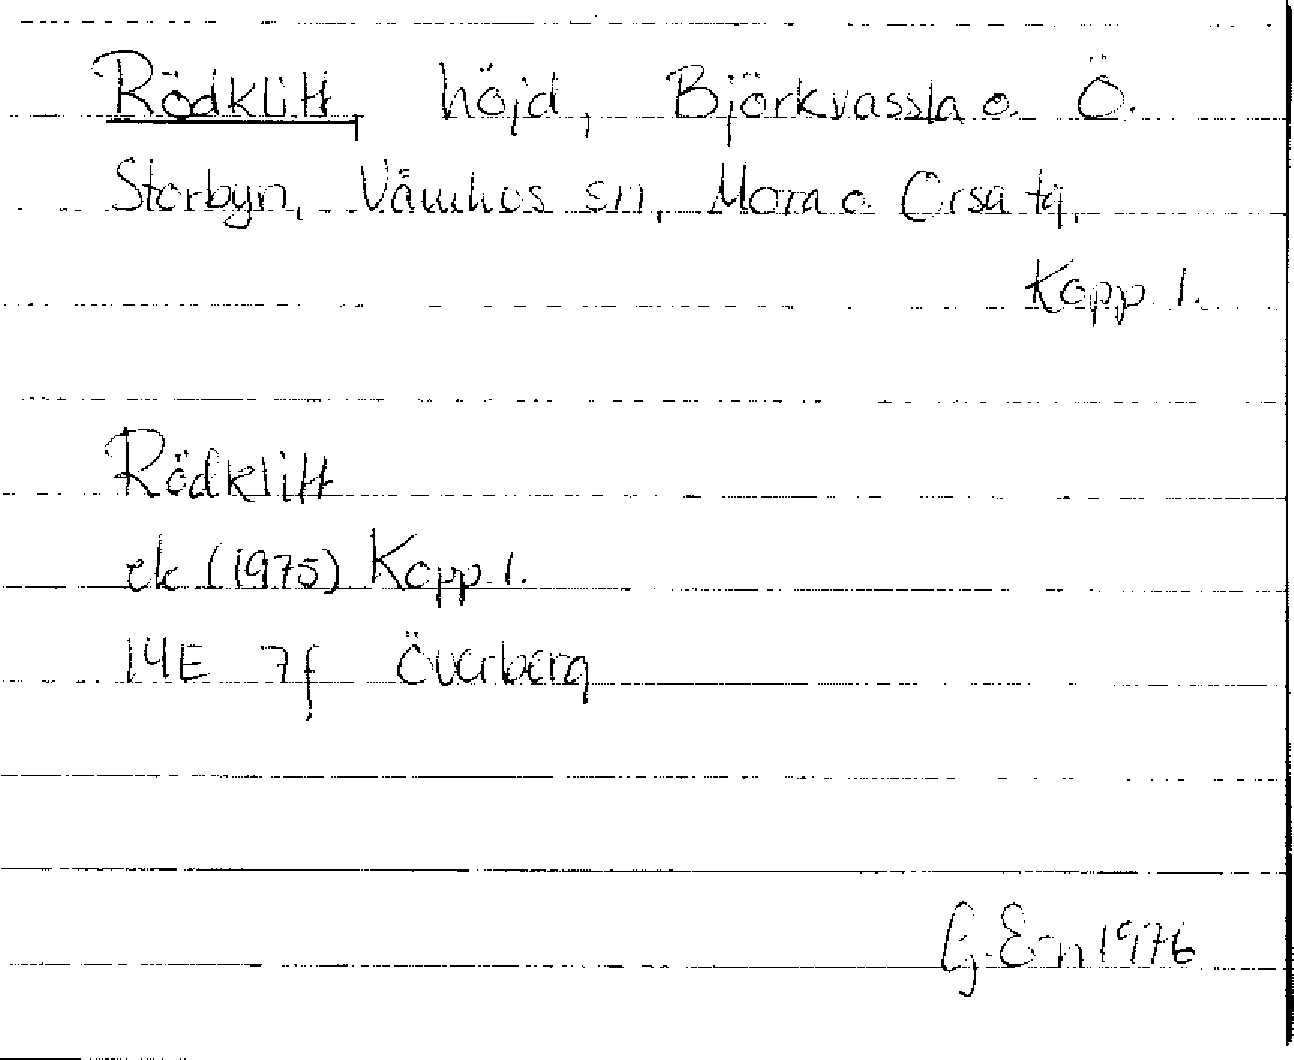 Rödklitt, höjd, Björkvassla o. Ö.
Storbyn, Våmhus sn, Mora o Orsa tg,
Kopp l.
Rödklitt
ek (1975) Kopp l.
14E 7f Överberg
G. E-n 1976